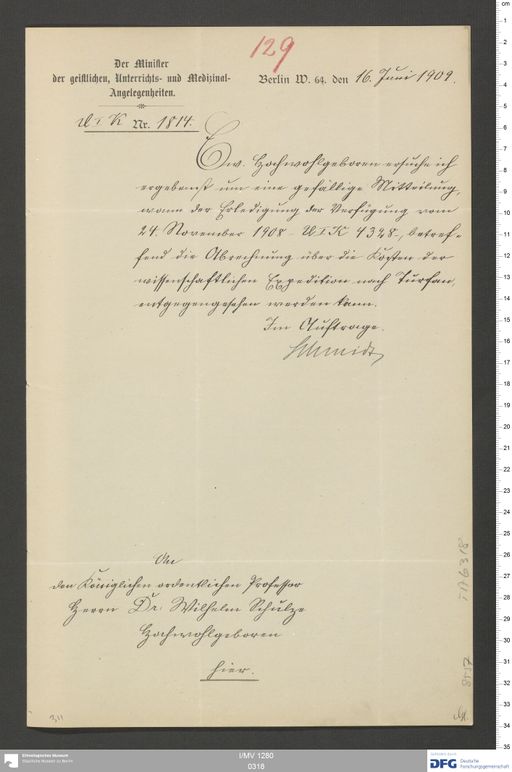 129
Der Minister
der geistlichen, Unterrichts- und Medizinal-
Angelegenheiten.
Berlin W. 64. den 16. Juni 1909.
U I K Nr. 1814.
Ew. Hochwohlgeboren ersuche ich
ergebenst um eine gefällige Mitteilung,
wann der Erledigung der Verfügung vom
24. November 1908 - U I K 4348 -, betref-
fend die Abrechnung über die Kosten der
wissenschaftlichen Expedition nach Turfan,
entgegengesehen werden kann.
Im Auftrage.
Schmidt
An
den Königlichen ordentlichen Professor
Herrn Dr. Wilhelm Schulze
Hochwohlgeboren
hier.
TA 6318
I/MV 1280
0318
Ethnologisches Museum
Staatliche Museen zu Berlin
DFG Deutsche
Forschungsgemeinschaft
cm
1
2
3
4
5
6
7
8
9
10
11
12
13
14
15
16
17
18
19
20
21
22
23
24
25
26
27
28
29
30
31
32
33
34
35